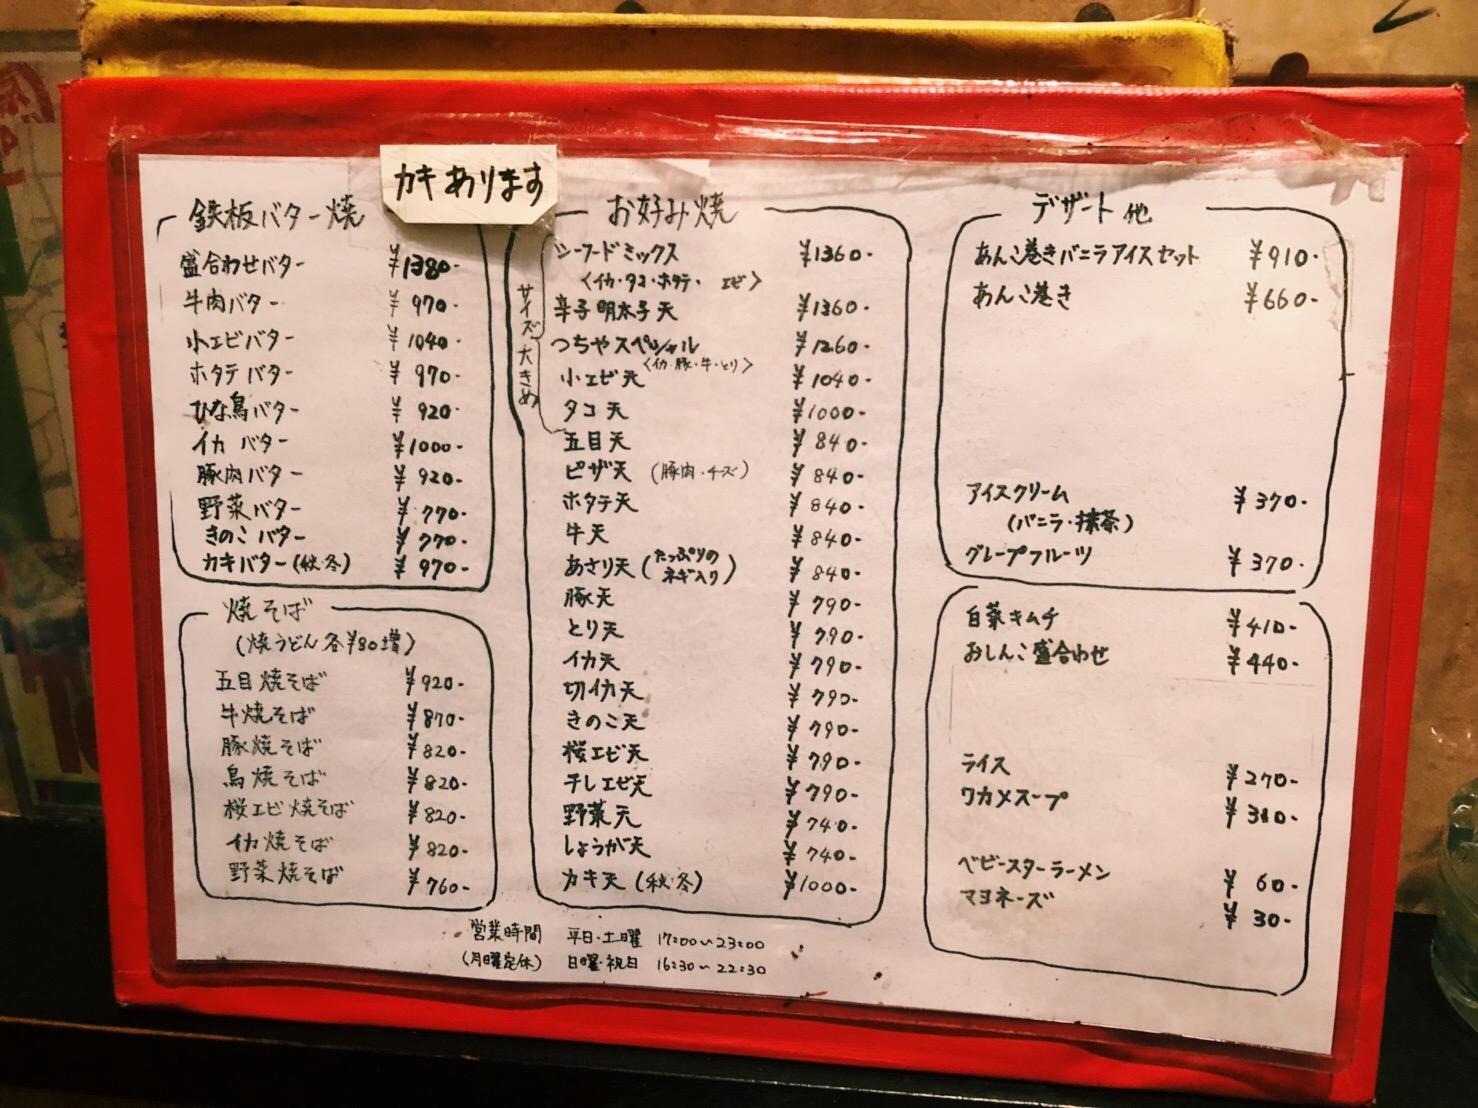 カキあります
鉄板バター焼
盛合わせバター ¥1380-
牛肉バター ¥970-
小エビバター ¥1040-
ホタテバター ¥970-
ひな鳥バター ¥920-
イカバター ¥1000-
豚肉バター ¥920-
野菜バター ¥770-
きのこバター ¥770-
カキバター(秋・冬) ¥970-
焼そば
(焼うどん各¥80増)
五目焼そば ¥920-
牛焼そば ¥870-
豚焼そば ¥820-
鳥焼そば ¥820-
桜エビ焼そば ¥820-
イカ焼そば ¥820-
野菜焼そば ¥760-
お好み焼
サイズ大きめ
シーフードミックス ¥1360-
〈イカ・タコ・ホタテ・エビ〉
辛子明太子天 ¥1360-
つちやスペシャル ¥1260-
〈イカ・豚・牛・とり〉
小エビ天 ¥1040-
タコ天 ¥1000-
五目天 ¥840-
ピザ天(豚肉・チーズ) ¥840-
ホタテ天 ¥840-
牛天 ¥840-
あさり天(たっぷりのネギ入り) ¥840-
豚天 ¥790-
とり天 ¥790-
イカ天 ¥790-
切イカ天 ¥790-
きのこ天 ¥790-
桜エビ天 ¥790-
干しエビ天 ¥790-
野菜天 ¥740-
しょうが天 ¥740-
カキ天(秋・冬) ¥1000-
デザート他
あんこ巻きバニラアイスセット ¥910-
あんこ巻き ¥660-
アイスクリーム ¥370-
(バニラ・抹茶)
グレープフルーツ ¥370-
白菜キムチ ¥410-
おしんこ盛合わせ ¥440-
ライス ¥270-
ワカメスープ
ベビースターラーメン ¥60-
マヨネーズ ¥30-
営業時間 平日・土曜 17:00〜23:00
(月曜定休) 日曜・祝日 16:30〜22:30